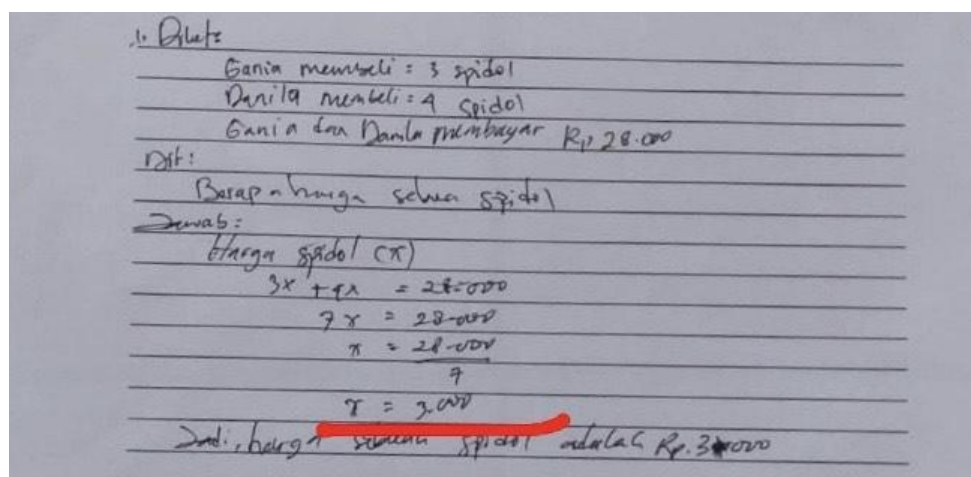 1. Diket:
Gania membeli = 3 spidol
Danila membeli = 4 spidol
Gania dan Danila membayar Rp 28.000
Dit:
Berapa harga sebua spidol
Jawab:
Harga spidol (x)
3x + 4x = 28.000
7x = 28.000
x = 28.000
7
x = 3.000
Jadi, harga sebuah spidol adalah Rp. 3.000